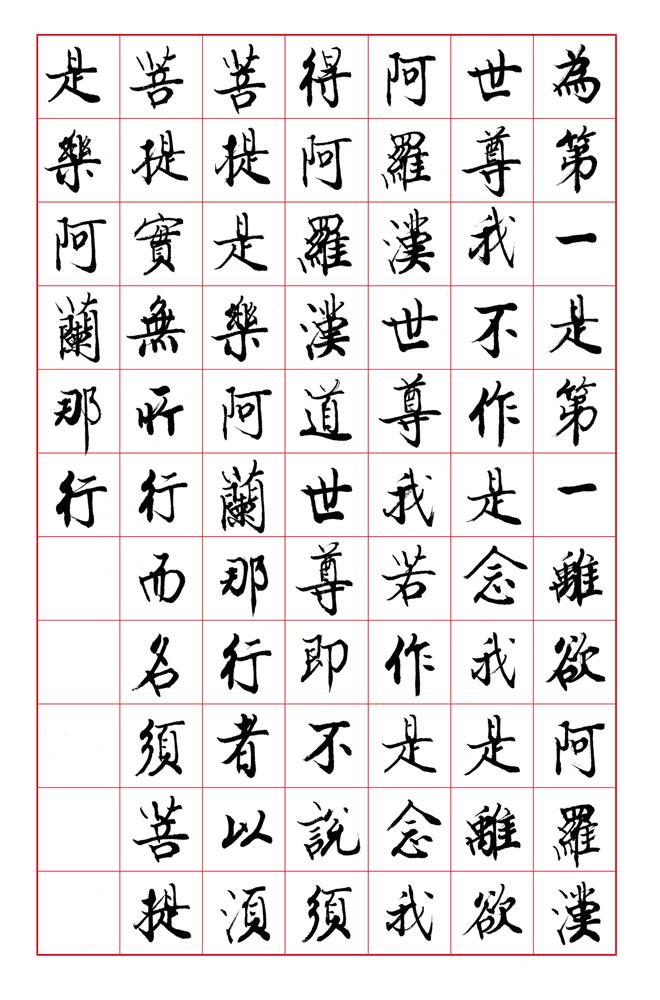 為第一是第一離欲阿羅漢
世尊我不作是念我是離欲
阿羅漢世尊我若作是念我
得阿羅漢道世尊即不說須
菩提是樂阿蘭那行者以須
菩提實無所行而名須菩提
是樂阿蘭那行